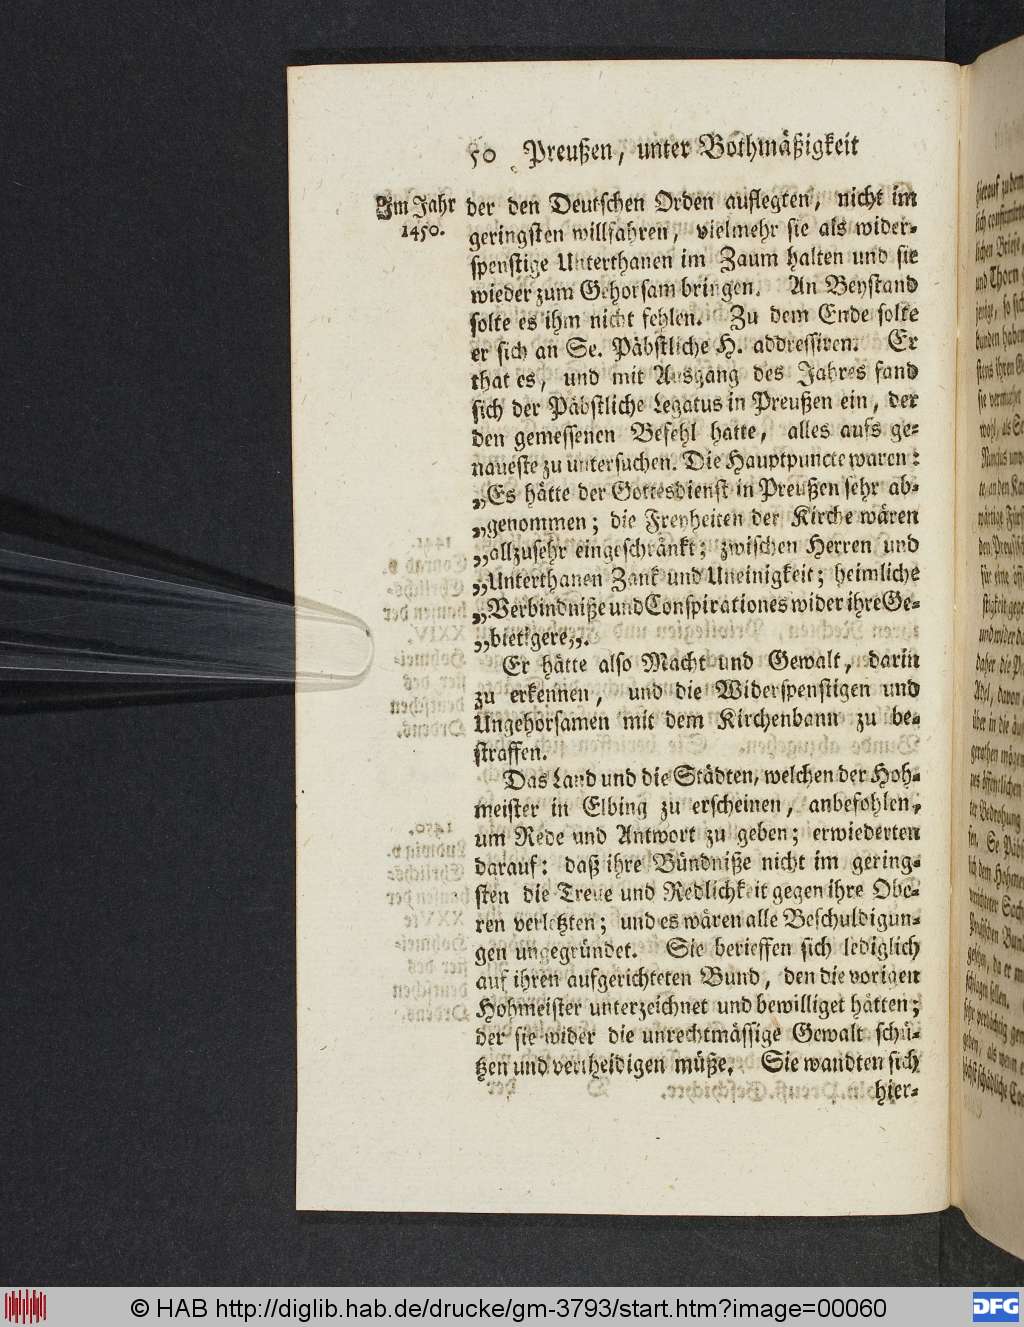 50 Preußen, unter Bothmäßigkeit
Im Jahr
1450.
der den Deutschen Orden auflegten, nicht im
geringsten willfahren, vielmehr sie als wider-
spenstige Unterthanen im Zaum halten und sie
wieder zum Gehorsam bringen. An Beystand
solte es ihm nicht fehlen. Zu dem Ende solte
er sich an Se. Päbstliche H. addressiren. Er
that es, und mit Ausgang des Jahres fand
sich der Päbstliche Legatus in Preußen ein, der
den gemessenen Befehl hatte, alles aufs ge-
naueste zu untersuchen. Die Hauptpuncte waren:
„Es hätte der Gottesdienst in Preußen sehr ab-
„genommen; die Freyheiten der Kirche wären
„allzusehr eingeschränkt; zwischen Herren und
„Unterthanen Zank und Uneinigkeit; heimliche
„Verbindniße und Conspirationes wider ihre Ge-
„bietigere„.
Er hätte also Macht und Gewalt, darin
zu erkennen, und die Widerspenstigen und
Ungehorsamen mit dem Kirchenbann zu be-
straffen.
Das Land und die Städten, welchen der Hoh-
meister in Elbing zu erscheinen, anbefohlen,
um Rede und Antwort zu geben; erwiederten
darauf: daß ihre Bündniße nicht im gering-
sten die Treue und Redlichkeit gegen ihre Obe-
ren verletzten; und es wären alle Beschuldigun-
gen ungegründet. Sie berieffen sich lediglich
auf ihren aufgerichteten Bund, den die vorigen
Hohmeister unterzeichnet und bewilliget hätten;
der sie wider die unrechtmässige Gewalt schü-
tzen und vertheidigen müße. Sie wandten sich
hier-
© HAB http://diglib.hab.de/drucke/gm-3793/start.htm?image=00060
DFG